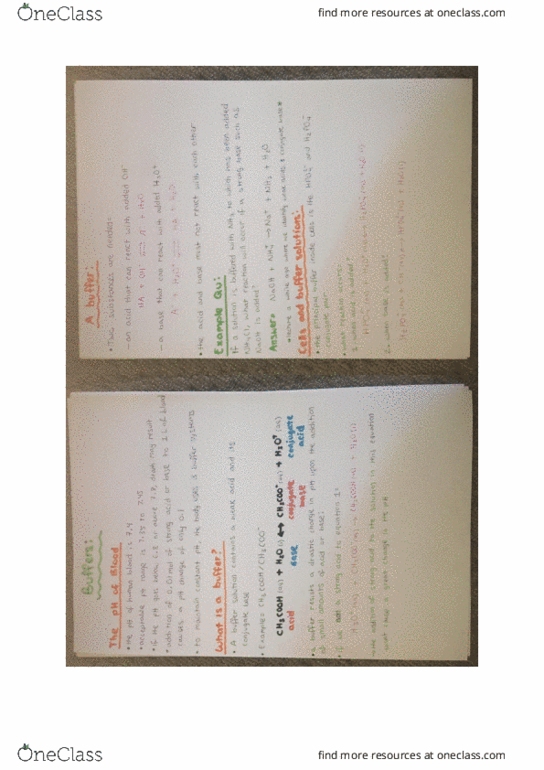 OneClass
find more resources at oneclass.com
Buffers:
The pH of Blood
• the pH of human blood is 7.4
• acceptable pH range is 7.35 to 7.45
• if the pH goes below 6.8 or above 7.8, death may result
• addition of 0.01 mol of strong acid or base to 1 L of blood
causes a pH change of only 0.1
• to maintain constant pH, the body uses 3 buffer systems
What is a buffer?
• A buffer solution contains a weak acid and its
conjugate base
• Example: CH3COOH/CH3COO-
CH3COOH (aq) + H2O (l) ↔ CH3COO- (aq) + H3O+ (aq)
acid base conjugate base conjugate acid
• a buffer resists a drastic change in pH upon the addition
of small amounts of acid or base:
• if we add a strong acid to equation 1:
H3O+ (aq) + CH3COO- (aq) → CH3COOH (aq) + H2O (l)
addition of strong acid to the solution in this equation
change in the pH
A buffer:
• Two substances are needed:
- an acid that can react with added OH-
HA + OH- ⇌ A- + H2O
- a base that can react with added H3O+
A- + H3O+ ⇌ HA + H2O
• the acid and base must not react with each other
Example Qu:
If a solution is buffered with NH3 to which has been added
NH4Cl, what reaction will occur if a strong base such as
NaOH is added?
Answer: NaOH + NH4+ → Na+ + NH3 + H2O
Cells and buffer solutions:
• the principal buffer inside cells is the HPO4 2- and H2PO4-
conjugate pair
• what reaction occurs:
1. when acid is added?
2. when base is added?
OneClass
find more resources at oneclass.com